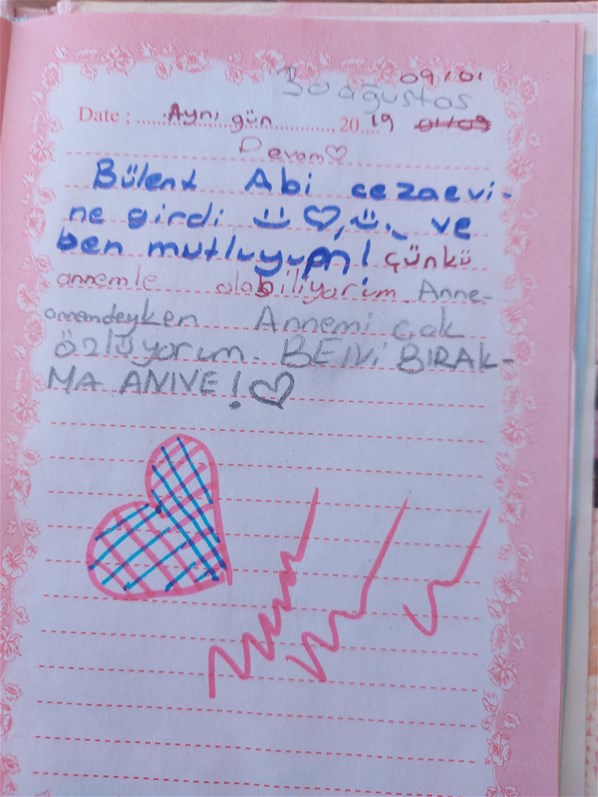 09/01
30 ağustos
Date : Aynı gün , 20 19 01/09
Devam♡
Bülent Abi cezaevi-
ne girdi ♡, ve
ben mutluyum! çünkü
annemle olabiliyorim Anne-
anendeyken Annemi çok
özlüyorım. BENİ BIRAK-
MA ANNE!♡